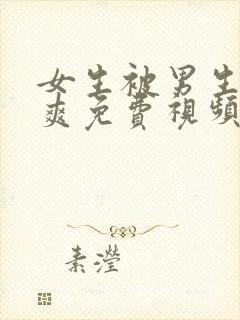 女生被男生
爽免費視頻
素瀅